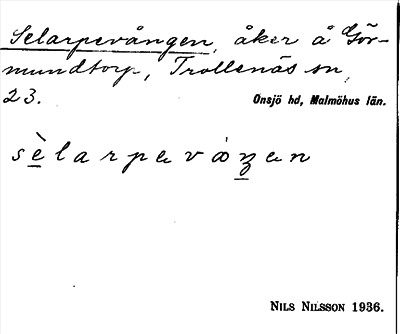 Selarpevången, åker å Gör-
mundtorp, Trollenäs sn,
23. Onsjö hd, Malmöhus län.
sèlarpevåŋen
NILS NILSSON 1936.